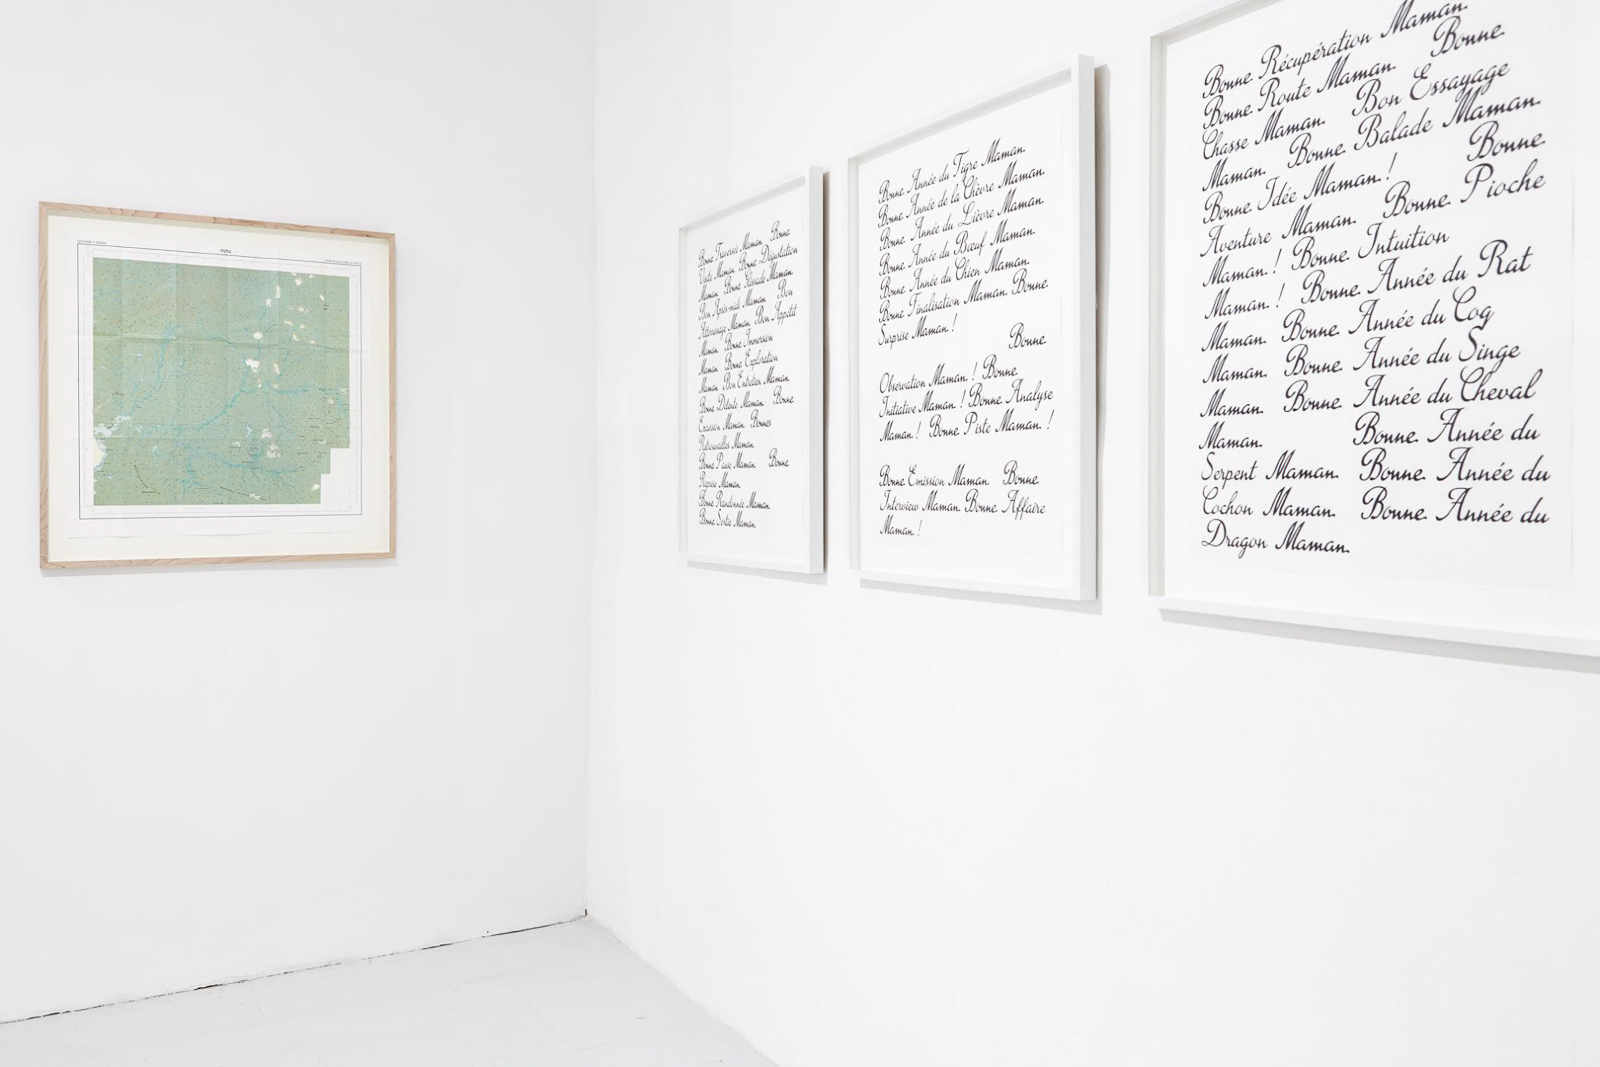 Bonne Traversée Maman. Bonne
Visite Maman. Bonne Dégustation
Maman. Bonne Rivecale Maman.
Bon Après-midi Maman. Bon
Atterrissage Maman. Bon Appétit
Maman. Bonne Immersion
Maman. Bonne Exploration
Maman. Bon Entretien Maman.
Bonne Détente Maman. Bonne
Évasion Maman. Bonnes
Retrouvailles Maman.
Bonne Pause Maman. Bonne
Reprise Maman.
Bonne Randonnée Maman.
Bonne Sortie Maman.
Bonne Année du Tigre Maman.
Bonne Année de la Chèvre Maman.
Bonne Année du Lièvre Maman.
Bonne Année du Bœuf Maman.
Bonne Année du Chien Maman.
Bonne Finalisation Maman. Bonne
Surprise Maman !
Bonne
Observation Maman ! Bonne
Initiative Maman ! Bonne Analyse
Maman ! Bonne Piste Maman !
Bonne Emission Maman. Bonne
Interview Maman. Bonne Affaire
Maman !
Bonne Récupération Maman.
Bonne Route Maman. Bonne
Chasse Maman. Bon Essayage
Maman. Bonne Balade Maman.
Bonne Idée Maman ! Bonne
Aventure Maman. Bonne Pioche
Maman ! Bonne Intuition
Maman ! Bonne Année du Rat
Maman. Bonne Année du Coq
Maman. Bonne Année du Singe
Maman. Bonne Année du Cheval
Maman. Bonne Année du
Serpent Maman. Bonne Année du
Cochon Maman. Bonne Année du
Dragon Maman.